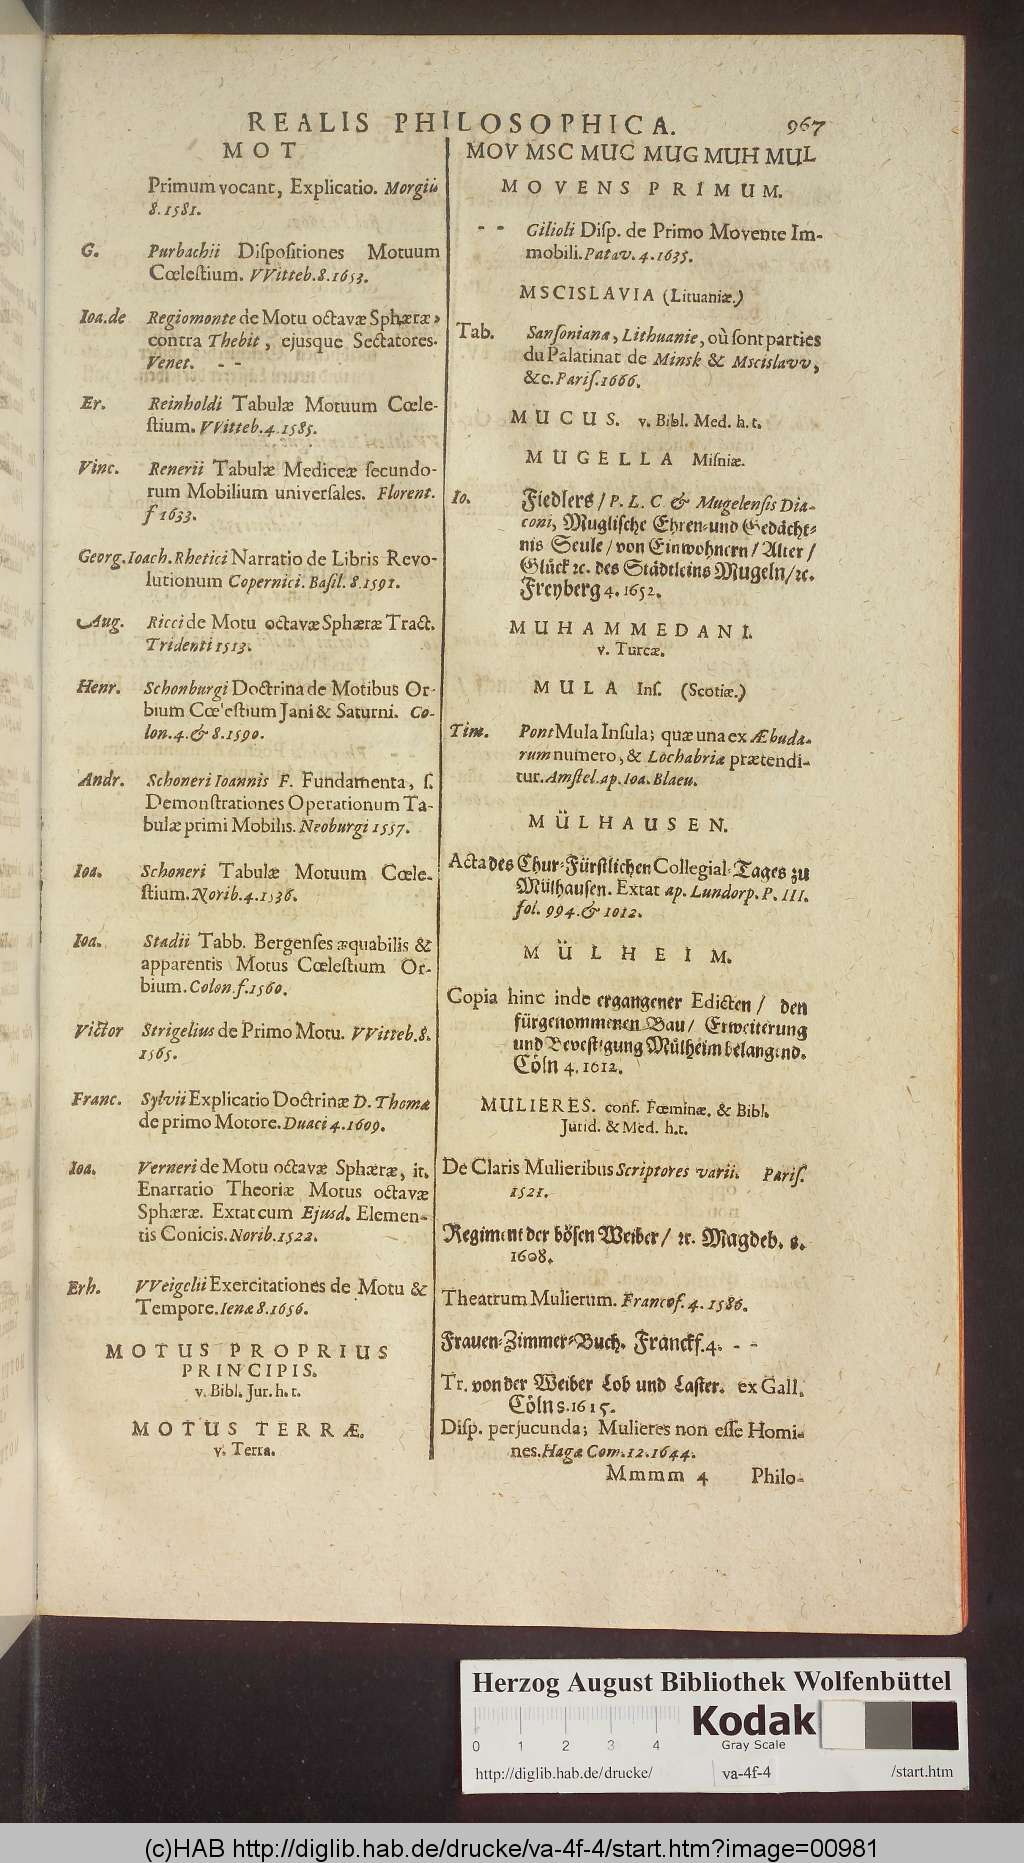 REALIS PHILOSOPHICA. 967
MOT
Primum vocant, Explicatio. Morgiis
8. 1581.
G. Purbachii Dispositiones Motuum
Cœlestium. VVitteb. 8. 1653.
Ioa. de Regiomonte de Motu octavæ Sphæræ,
contra Thebit, ejusque Sectatores.
Venet. - -
Er. Reinholdi Tabulæ Motuum Cœle-
stium. VVitteb. 4. 1585.
Vinc. Renerii Tabulæ Mediceæ secundo-
rum Mobilium universales. Florent.
f 1633.
Georg. Ioach. Rhetici Narratio de Libris Revo-
lutionum Copernici. Basil. 8. 1591.
Aug. Ricci de Motu octavæ Sphæræ Tract.
Tridenti 1513.
Henr. Schonburgi Doctrina de Motibus Or-
bium Cœlestium Jani & Saturni. Co-
lon. 4. & 8. 1590.
Andr. Schoneri Ioannis F. Fundamenta, s.
Demonstrationes Operationum Ta-
bulæ primi Mobilis. Neoburgi 1557.
Ioa. Schoneri Tabulæ Motuum Cœle-
stium. Norib. 4. 1536.
Ioa. Stadii Tabb. Bergenses æquabilis &
apparentis Motus Cœlestium Or-
bium. Colon. f. 1560.
Victor Strigelius de Primo Motu. VVitteb. 8.
1565.
Franc. Sylvii Explicatio Doctrinæ D. Thomæ
de primo Motore. Duaci 4. 1609.
Ioa. Verneri de Motu octavæ Sphæræ, it.
Enarratio Theoriæ Motus octavæ
Sphæræ. Extat cum Ejusd. Elemen-
tis Conicis. Norib. 1522.
Erh. VVeigelii Exercitationes de Motu &
Tempore. Ienæ 8. 1656.
MOTUS PROPRIUS
PRINCIPIS.
v. Bibl. Jur. h. t.
MOTUS TERRÆ.
v. Terra.
MOV MSC MUC MUG MUH MUL
MOVENS PRIMUM.
- - Gilioli Disp. de Primo Movente Im-
mobili. Patav. 4. 1635.
MSCISLAVIA (Lituaniæ.)
Tab. Sansoniana, Lithuanie, où sont parties
du Palatinat de Minsk & Mscislavv,
&c. Paris. 1666.
MUCUS. v. Bibl. Med. h. t.
MUGELLA Misniæ.
Io. Fiedlers / P. L. C & Mugelensis Dia-
coni, Muglische Ehren- und Gedächt-
nis Seule / von Einwohnern / Alter /
Glück ꝛc. des Städtleins Mugeln / ꝛc.
Freyberg 4. 1652.
MUHAMMEDANI.
v. Turcæ.
MULA Ins. (Scotiæ.)
Tim. Pont Mula Insula; quæ una ex Æbuda-
rum numero, & Lochabriæ prætendi-
tur. Amstel. ap. Ioa. Blaeu.
MÜLHAUSEN.
Acta des Chur-Fürstlichen Collegial-Tages zu
Mülhausen. Extat ap. Lundorp. P. III.
fol. 994. & 1012.
MÜLHEIM.
Copia hinc inde ergangener Edicten / den
fürgenommenen Bau / Erweiterung
und Bevestigung Mülheim belangend.
Cöln 4. 1612.
MULIERES. conf. Fœminæ. & Bibl.
Jurid. & Med. h. t.
De Claris Mulieribus Scriptores varii. Paris.
1521.
Regiment der bösen Weiber / ꝛc. Magdeb. 8.
1608.
Theatrum Mulierum. Francof. 4. 1586.
Frauen-Zimmer-Buch. Franckf. 4. - -
Tr. von der Weiber Lob und Laster. ex Gall.
Cöln 8. 1615.
Disp. perjucunda; Mulieres non esse Homi-
nes. Hagæ Com. 12. 1644.
Mmmm 4 Philo-
Herzog August Bibliothek Wolfenbüttel
0 1 2 3 4
Kodak
Gray Scale
http://diglib.hab.de/drucke/ va-4f-4 /start.htm
(c)HAB http://diglib.hab.de/drucke/va-4f-4/start.htm?image=00981